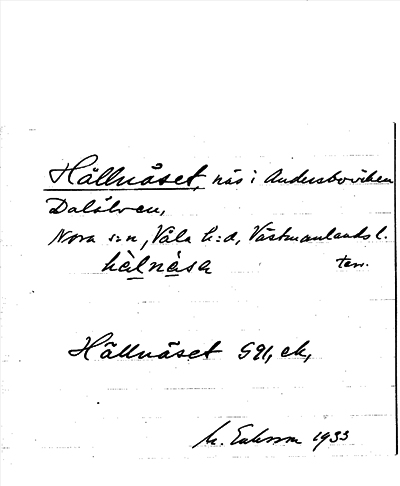 Hällnäset, näs i Andersboviken
Dalälven,
Nora s:n, Våla h:d, Västmanlands l.
hälnäsa ter.
Hällnäset G91, ek,
M. Eriksson 1933